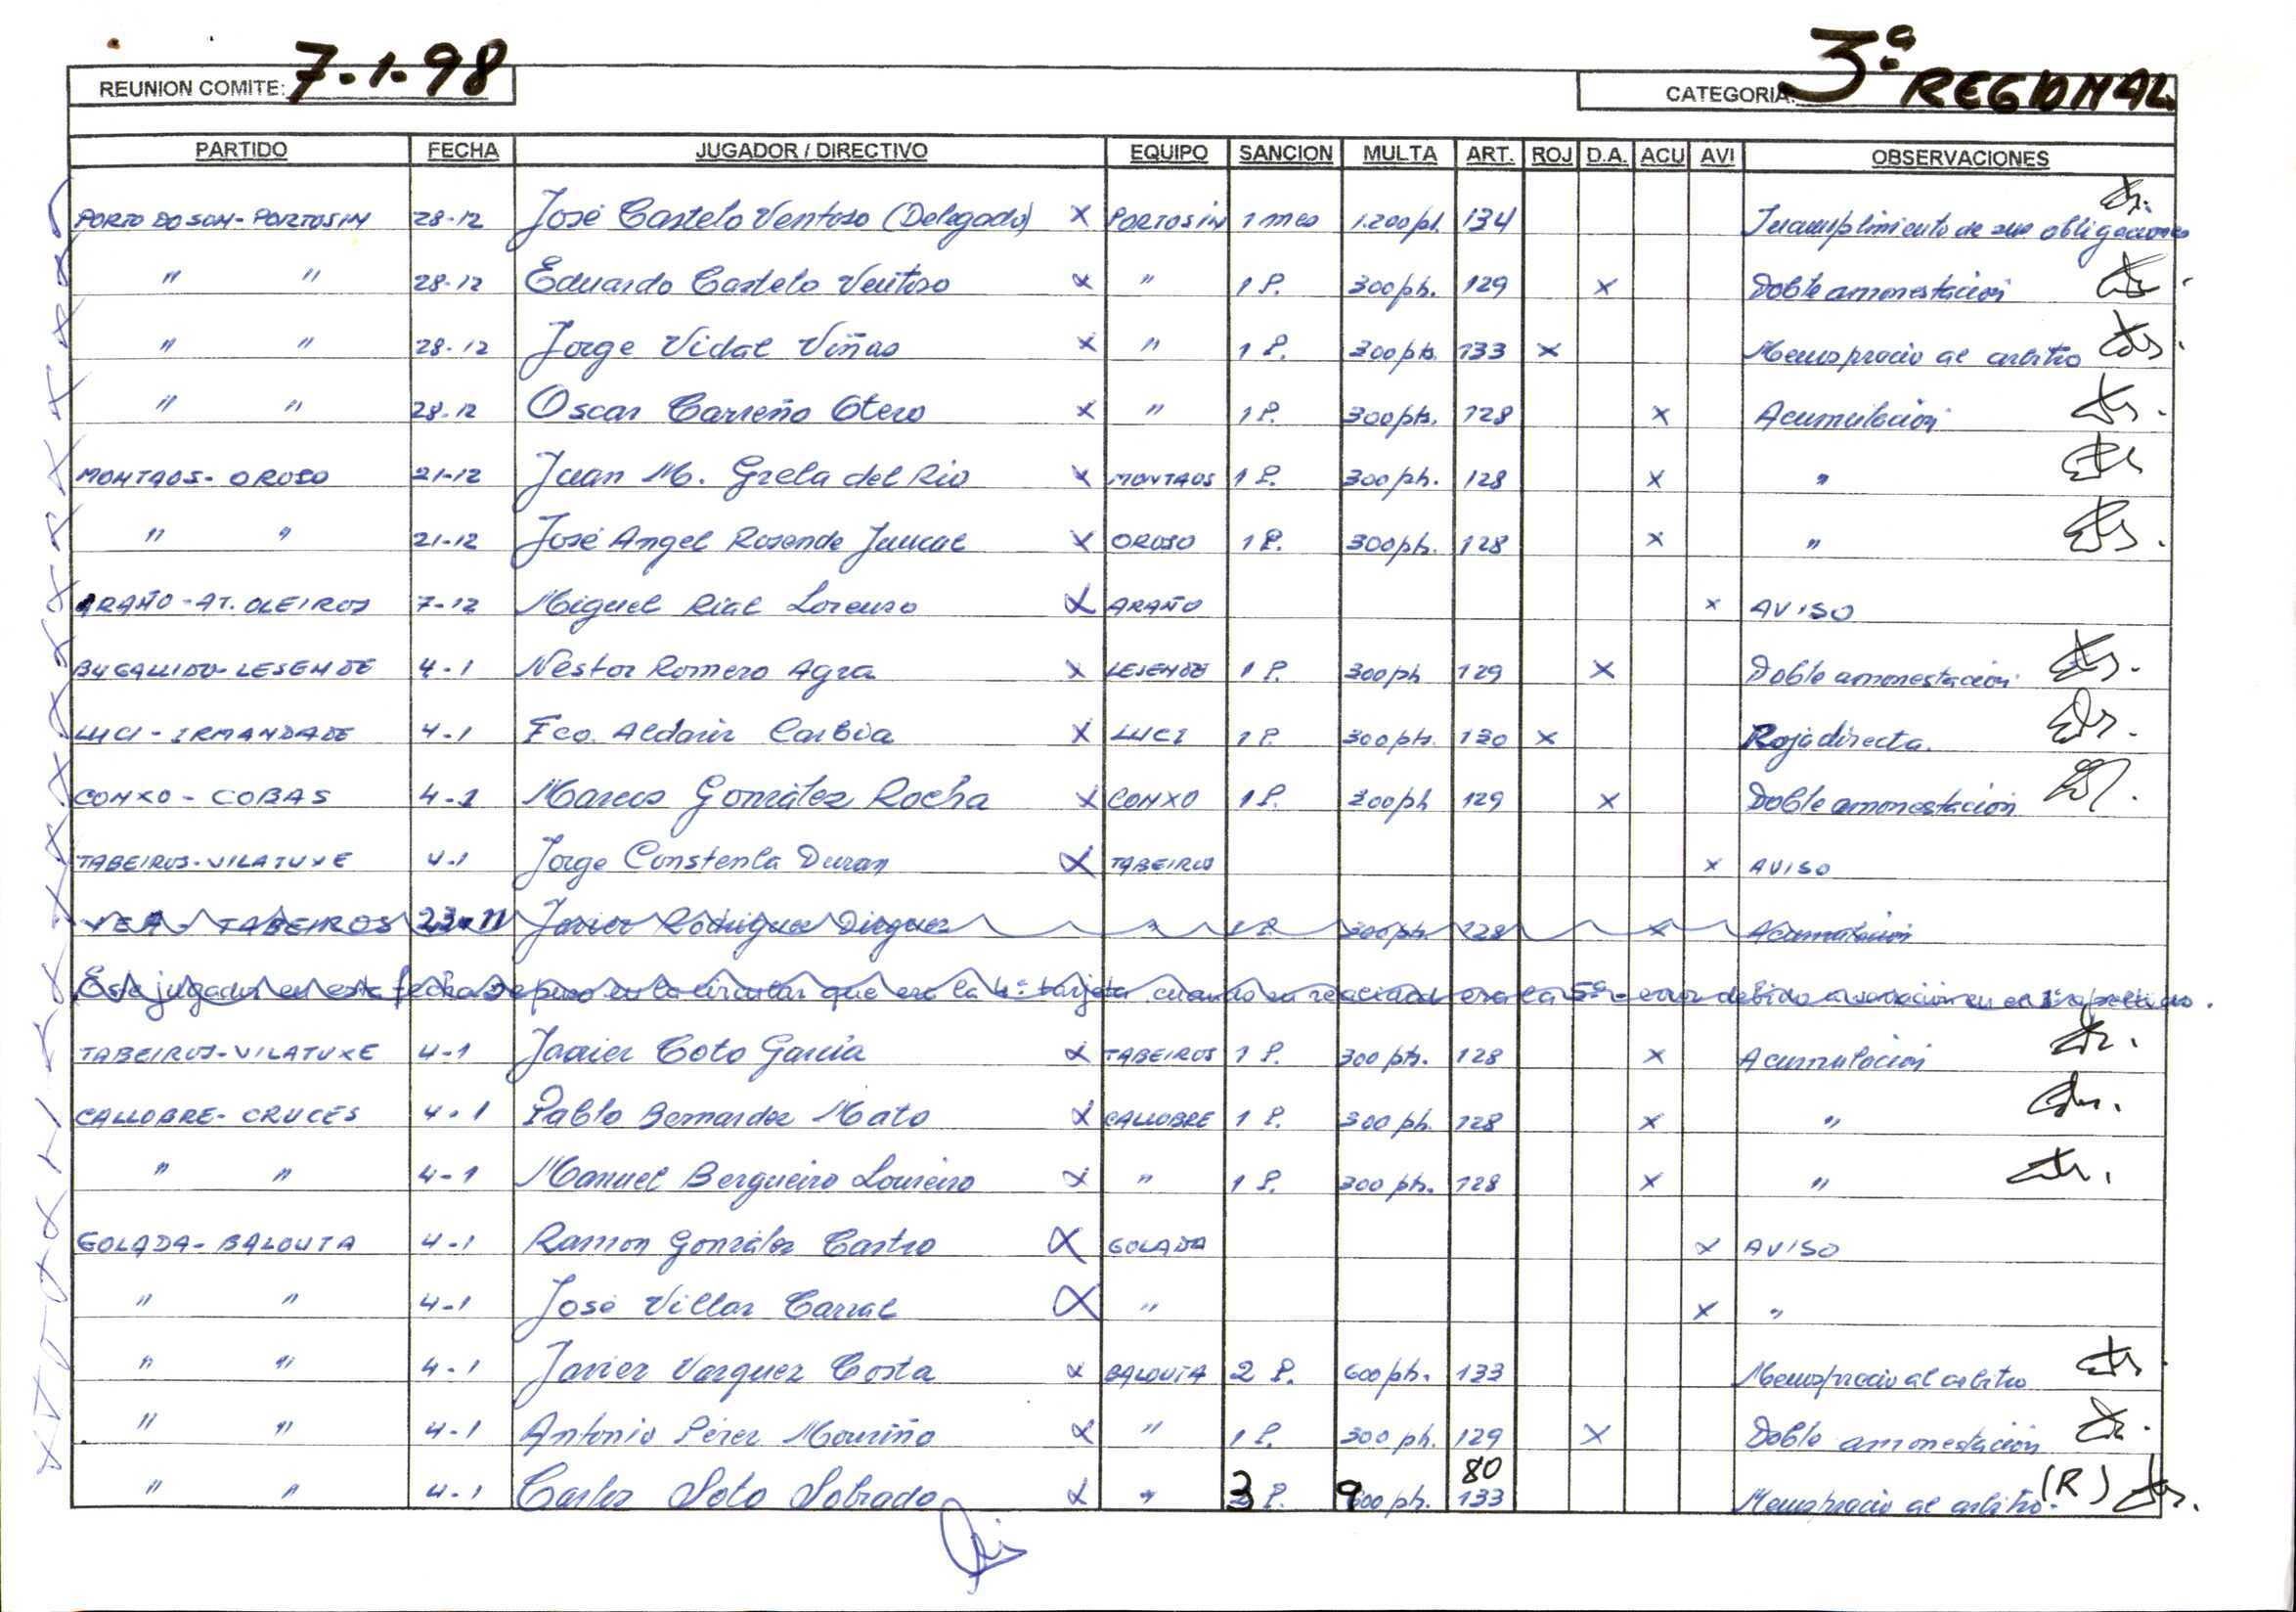 REUNION COMITE: 7-1-98 CATEGORIA: 3ª REGIONAL
PARTIDO FECHA JUGADOR / DIRECTIVO EQUIPO SANCION MULTA ART. ROJ D.A. ACU AVI OBSERVACIONES
PORTO DO SON - PORTOSIN 28-12 José Castelo Ventoso (Delegado) X PORTOSIN 1 mes 1.200 pts. 134 Incumplimiento de sus obligaciones
" " 28-12 Eduardo Castelo Ventoso X " 1 P. 300 pts. 129 X Doble amonestación
" " 28-12 Jorge Vidal Viñas X " 1 P. 300 pts. 133 X Menosprecio al arbitro
" " 28-12 Oscar Carreño Otero X " 1 P. 300 pts. 128 X Acumulación
MONTAOS - OROSO 21-12 Juan M. Grela del Rio X MONTAOS 1 P. 300 pts. 128 X "
" " 21-12 José Angel Rosende Juncal X OROSO 1 P. 300 pts. 128 X "
ARAÑO - AT. OLEIROS 7-12 Miguel Rial Lorenzo X ARAÑO X AVISO
BUGALLIDO - LESENDE 4-1 Néstor Romero Agra X LESENDE 1 P. 300 pts 129 X Doble amonestación
LUCI - IRMANDADE 4-1 Fco. Aldariz X LUCI 1 P. 300 pts. 130 X Roja directa.
CONXO - COBAS 4-1 Marcos González Rocha X CONXO 1 P. 300 pts 129 X Doble amonestación
TABEIROS - VILATUXE 4-1 Jorge Constenla Duran X TABEIROS X AVISO
VEA - TABEIROS 23-11 Javier Rodriguez Dieguez " 1 P. 300 pts. 128 X Acumulación
Este jugador en esta fecha se puso en la circular que era la 4ª tarjeta cuando en realidad era la 5ª - error debido a variación en el 1er apellido.
TABEIROS - VILATUXE 4-1 Javier Coto Garcia X TABEIROS 1 P. 300 pts. 128 X Acumulación
CALLOBRE - CRUCES 4-1 Pablo Bernardez Mato X CALLOBRE 1 P. 300 pts. 128 X "
" " 4-1 Manuel Bergueiro Loureiro X " 1 P. 300 pts. 128 X "
GOLADA - BALOUTA 4-1 Ramon González Castro X GOLADA X AVISO
" " 4-1 José Villar Carral X " X "
" " 4-1 Javier Vazquez Costa X BALOUTA 2 P. 600 pts. 133 Menosprecio al arbitro
" " 4-1 Antonio Pérez Mouriño X " 1 P. 300 pts. 129 X Doble amonestación
80
" " 4-1 Carlos Soto Sobrado X " 3 P. 900 pts. 133 Menosprecio al arbitro. (R)